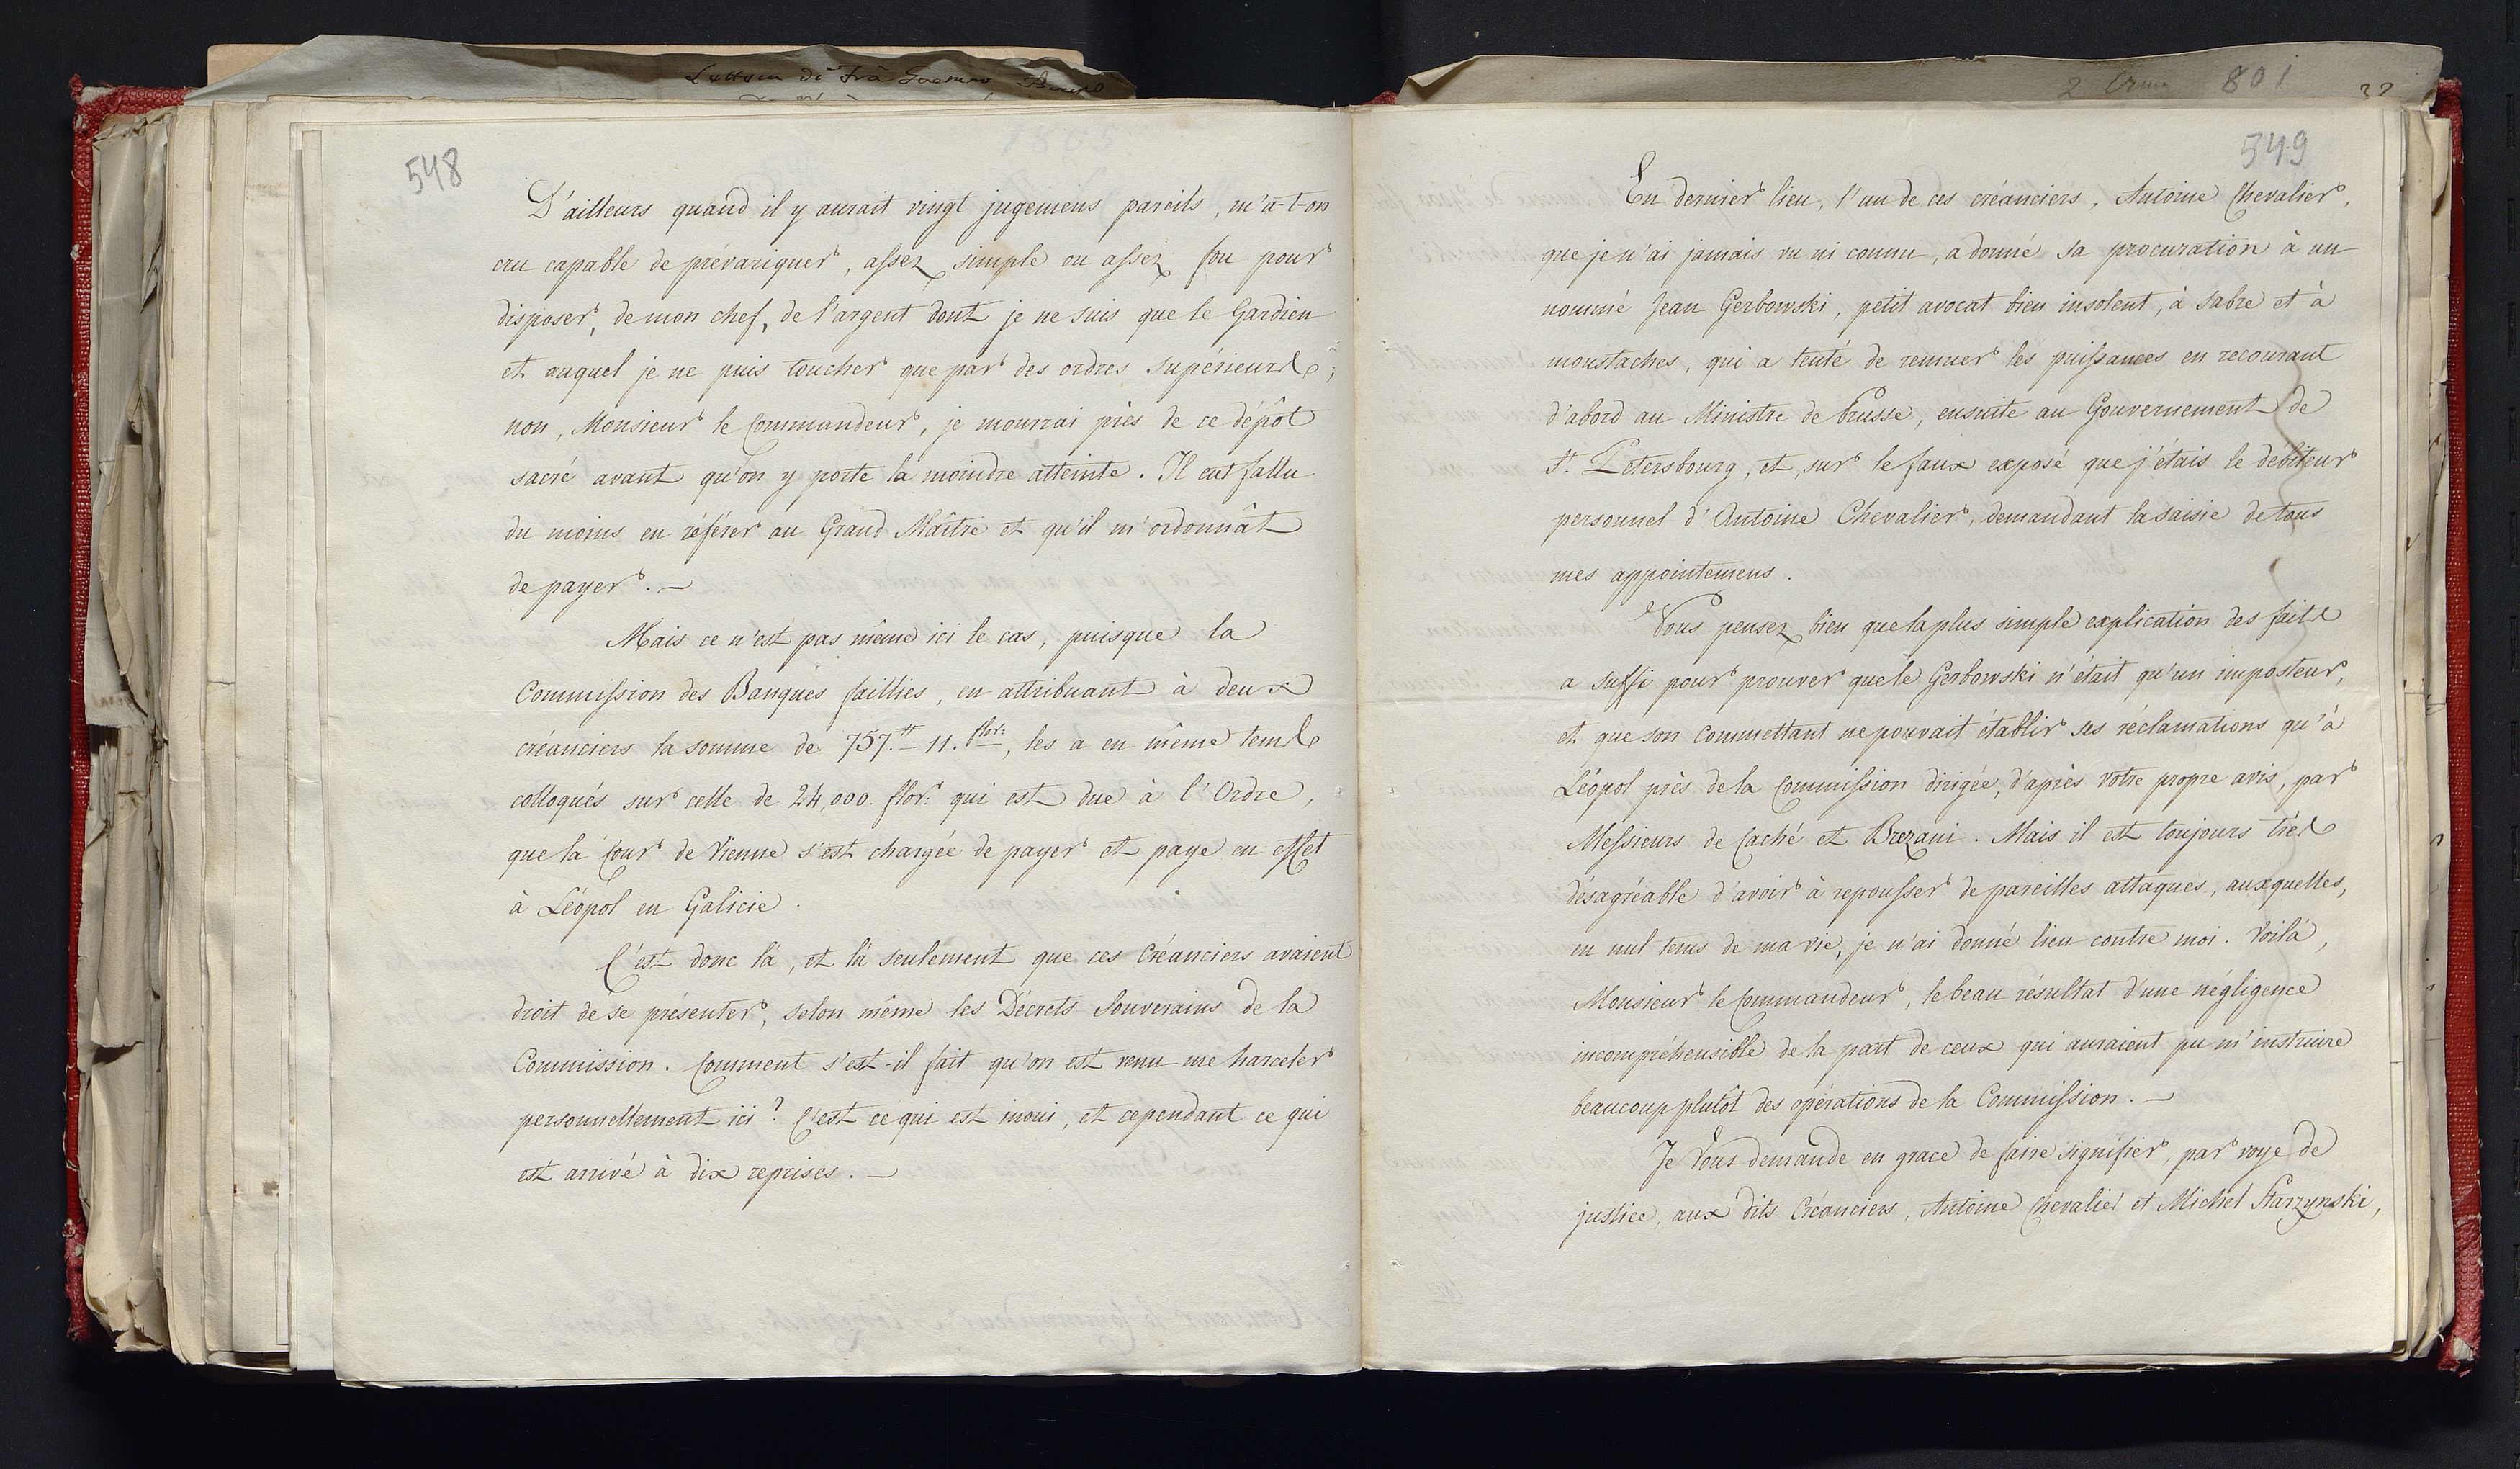 548
D'ailleurs quand il y aurait vingt jugemens pareils, m'a-t-on
cru capable de prévariquer, assez simple ou assez fou pour
disposer, de mon chef, de l'argent dont je ne suis que le Gardien
et auquel je ne puis toucher que par des ordres supérieurs;
non, Monsieur le Commandeur, je mourrai près de ce dépôt
sacré avant qu'on y porte la moindre atteinte. Il eut fallu
du moins en référer au Grand Maître et qu'il m'ordonnât
de payer. —
Mais ce n'est pas même ici le cas, puisque la
Commission des Banques faillies, en attribuant à deux
créanciers la somme de 757.# 11. flor:, les a en même tems
colloqués sur celle de 24,000. flor: qui est due à l'Ordre,
que la Cour de Vienne s'est chargée de payer et paye en effet
à Léopol en Galicie.
C'est donc là, et là seulement que ces Créanciers avaient
droit de se présenter, selon même les Décrets Souverains de la
Commission. Comment s'est-il fait qu'on est venu me harceler
personnellement ici? C'est ce qui est inoui, et cependant ce qui
est arrivé à dix reprises. —
2 801
32
549
En dernier lieu, l'un de ces créanciers, Antoine Chevalier,
que je n'ai jamais vu ni connu, a donné sa procuration à un
nommé Jean Gerbowski, petit avocat bien insolent, à sabre et à
moustaches, qui a tenté de remuer les puissances en recourant
d'abord au Ministre de Prusse, ensuite au Gouvernement de
St. Petersbourg, et, sur le faux exposé que j'étais le débiteur
personnel d'Antoine Chevalier, demandant la saisie de tous
mes appointemens.
Vous pensez bien que la plus simple explication des faits
a suffi pour prouver que le Gerbowski n'était qu'un imposteur,
et que son commettant ne pouvait établir ses réclamations qu'à
Léopol près de la Commission dirigée, d'après votre propre avis, par
Messieurs de Caché et Brezani. Mais il est toujours très
désagréable d'avoir à repousser de pareilles attaques, auxquelles,
en nul tems de ma vie, je n'ai donné lieu contre moi. Voilà,
Monsieur le Commandeur, le beau résultat d'une négligence
incompréhensible de la part de ceux qui auraient pu m'instruire
beaucoup plutôt des opérations de la Commission. —
Je Vous demande en grace de faire signifier, par voye de
justice, aux dits Créanciers, Antoine Chevalier et Michel Starzynski,